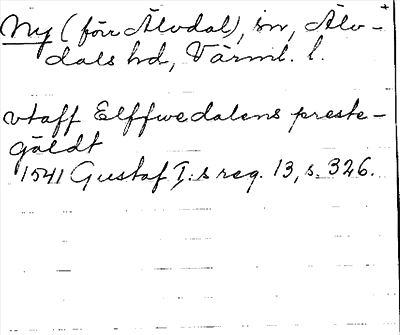 Ny (förr Älvdal), sn, Älv-
dals hd, Värml. l.
vtaff Elffwedalens preste-
gäldt
1541 Gustaf I:s reg. 13, s. 326.